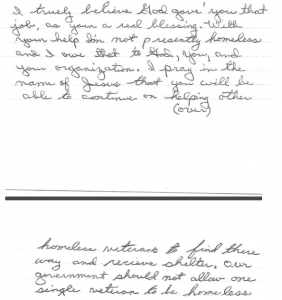 I truely believe God gave' you that
job, as your a real blessing. With
your help Im not presently homeless
and I owe that to God, You, and
your organization. I pray in the
name of Jesus that you will be
able to continue on helping other
(over)
homeless veterans to find there
way and recieve shelter, our
government should not allow one
single veteran to be homeless